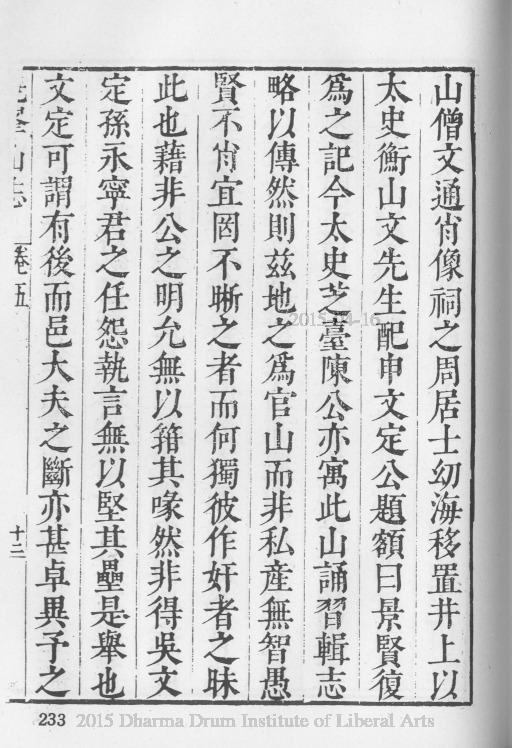 山僧文通肖像祠之周居士幻海移置井上以
太史衡山文先生配申文定公題額曰景賢復
爲之記今太史芝臺陳公亦寓此山誦習輯志
略以傳然則兹地之爲官山而非私産無智愚
賢不肖宜罔不晰之者而何獨彼作奸者之昧
此也藉非公之明允無以箝其喙然非得吳文
定孫永寧君之任怨執言無以堅其壘是舉也
文定可謂有後而邑大夫之斷亦甚卓異予之
山志 卷五 十二
2015-04-16
233 2015 Dharma Drum Institute of Liberal Arts